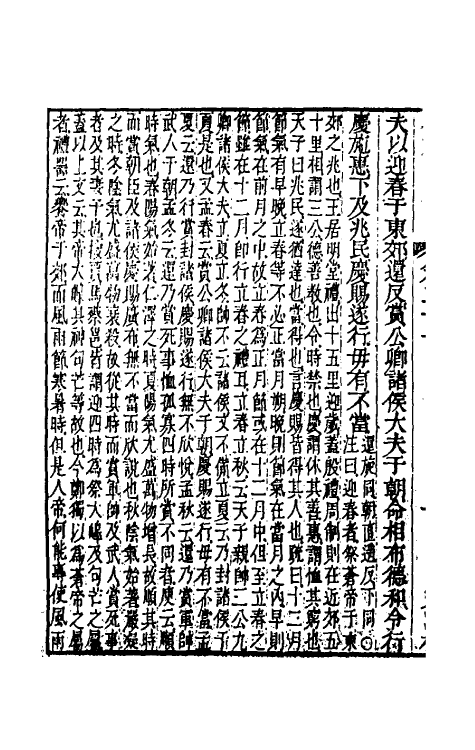 夫以迎春于東郊還反賞公卿諸侯大夫于朝命相布德和令行
慶施惠下及兆民慶賜遂行毋有不當
還施同朝直遥反下同〇
注曰迎春者祭蒼帝于東
郊之兆也王居明堂禮曰出十五里迎歲蓋殷禮周制則在近郊五
十里相謂三公德善敎也令時禁也慶謂休其善惠謂恤其窮也
天子曰兆民遂猶達也當得也言慶賜皆得其人也疏曰十二月
節氣有早晚立春等不必正當月朔晚則節氣在當月之内早則
節氣在前月之中故立春爲正月節或在十二月中但至立春之
節雖在十二月即行立春之禮耳立春立秋云天子親帥三公九
卿諸侯大夫立夏立冬不云諸侯文不備耳立夏云還乃行賞封諸侯
夏是也又孟春云賞公卿諸侯大夫于朝慶賜遂行毋有不當孟
夏云還乃行賞封諸侯慶賜遂行無不欣悅孟秋云還乃賞軍帥
武人于朝孟冬云還乃賞死事恤孤寡四時所賞不同者庾云順
時氣也春陽氣始著仁澤之時夏陽氣尤盛萬物增長故順其時
而賞朝臣及諸侯慶賜廣布無不當而欣說也秋陰氣始著嚴凝
之時冬陰氣尤盛萬物衰殺故從其時而賞軍帥及武人賞死事
者及其妻子也按賈馬蔡邕皆謂迎四時爲祭大皞及句芒之屬
蓋以上文云其帝大皞其神句芒等故也今鄭獨以爲蒼帝之屬
者禮器云饗帝于郊而風雨節寒暑時但是人帝何能專使風雨